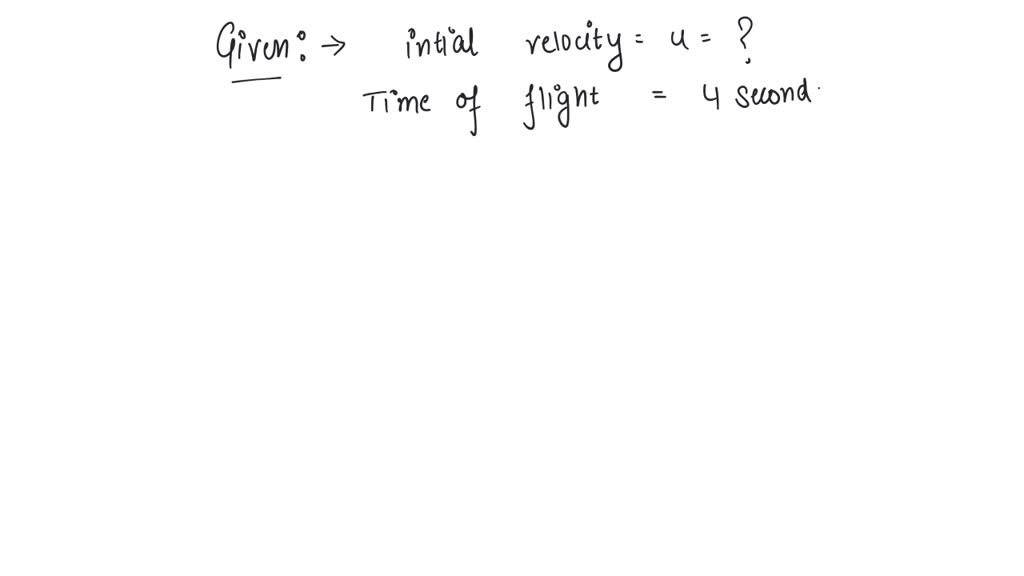 Given: → intial velocity = u = ?
Time of flight = 4 second.